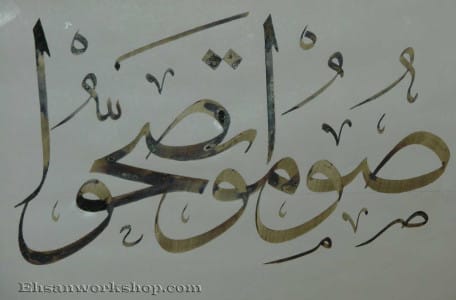 صُومُوا تَصِحُّوا
Ehsanworkshop.com